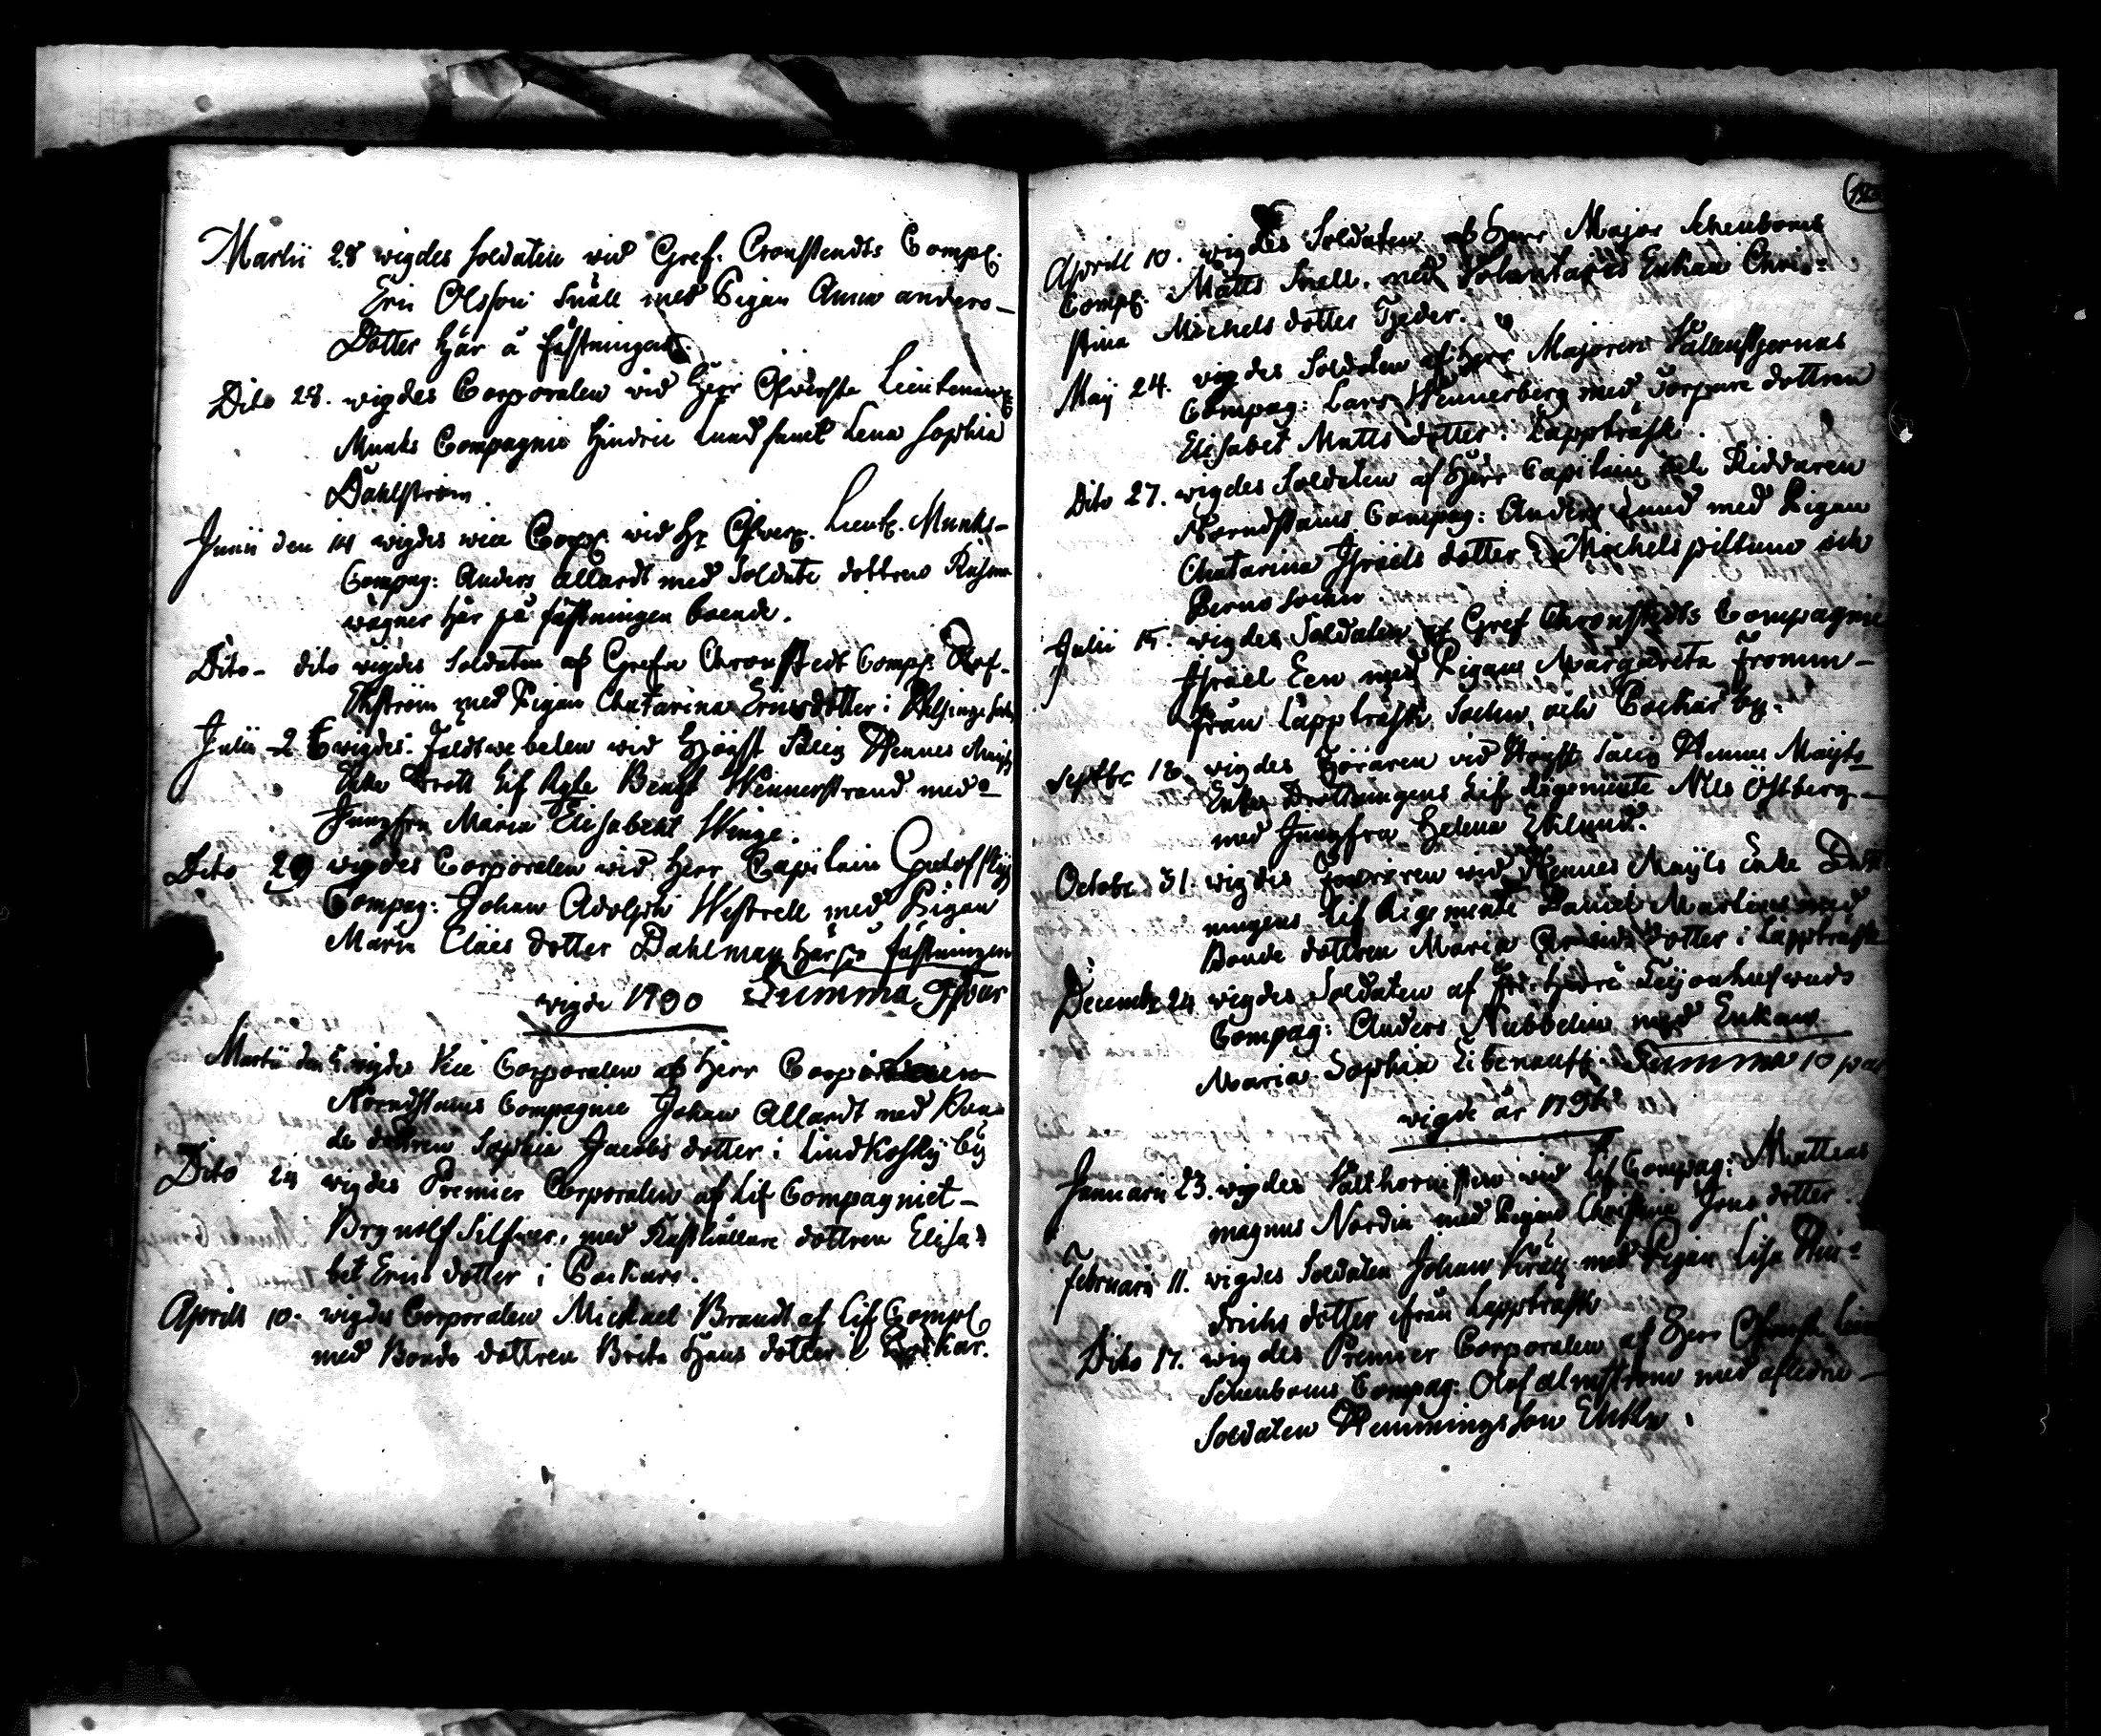 Martii 28 wigdes Soldaten wid Gref. Cronstedts Comp.
Eric Olsson Snäll med Pigan Anna anders-
Dotter här å fästningen.
Dito 28. wigdes Corporalen wid Herr Öfwerste Lieutenant
Munks Compagnie Hindric Lund samt Lena Sophia
Dahlström.
Junii den 14 wigdes wice Corp. wid Hr Öfwer. Lieut. Munks-
Compag: Anders Allardt med Soldate dottren
wägner här på fästningen boende.
Dito - dito wigdes Soldaten af Grefve Cronstedt Comp.
med Pigan Chatarina Ericsdotter i
Julii wigdes Feldtwebelen wid Hennes
Enke Drott Lif Bengt Wennerstrand med
Jungfru Maria Elisabeht Winge.
Dito 29 wigdes Corporalen wid Herr Capitain
Compag: Johan Adolph Westrell med Pigan
Maria Claes dotter Dahlman här på fästningen
wigde 1790 Summa
Martii den wigdes Vice Corporalen af Herr
Compagnie Johan Allardt med Bon-
de dottren Sophia Jacobs dotter i Lindkosky by
Dito 24 wigdes Premier Corporalen af Lif Compagniet-
Brynolf Silfwer, med Rusthållare dottren Elisa-
bet Erics dotter i
Aprill 10. wigdes Corporalen Michael Brandt af Lif Comp
med Bonde dottren Brita Hans dotter i
Aprill 10. wigdes Soldaten af Herr Major Scheuboms
Comp. Matts Snell, med Enkan Chri-
stina Michels dotter
Maij 24. wigdes Soldaten af Herr Majoren
Compag: Lars Wennerberg med Torpare dottren
Elisabet Matts dotter. Lappträsk.
Dito 27. wigdes Soldaten af Herr Capitain och Riddaren
Compag: Anders Lund med Pigan
Chatarina Israels dotter i Michelspiltum och
Perno Socken.
Julii 15. wigdes Soldaten af Gref Chronstedts Compagnie
Israel Een med Pigan Margareta Fromm-
från Lappträsk Sochn, och by.
Septbr 18. wigdes wid Högst Salig Hennes Maijts
Enke Drottningens Lif Regemente Nils Östberg-
med Jungfru Helena Eklund.
Octobr. 31. wigdes Fouriren wid Hennes Maijts Enke Drott
ningens Lif Regemente Daniel Martin med
Bonde dottren Maria dotter i Lappträsk
Decembr 24 wigdes Soldaten af Leijonhufwuds
Compag: Anders Nubbelin med Enkan
Maria Sophia Summa 10 par
wigde år
Januarii 23. wigdes Valthornisten wid Lif Compag: Mattias
magnus Nordin med Pigan Christina Jons dotter.
Februarii 11. wigdes Soldaten Johan med Pigan Lisa Hin-
drichs dotter ifrån Lappträsk
Dito 17. wigdes Premier Corporalen af Herr Öfwerste
Scheuboms Compag: Olof Almström med afledne-
Soldaten Hemmingsson Enka.